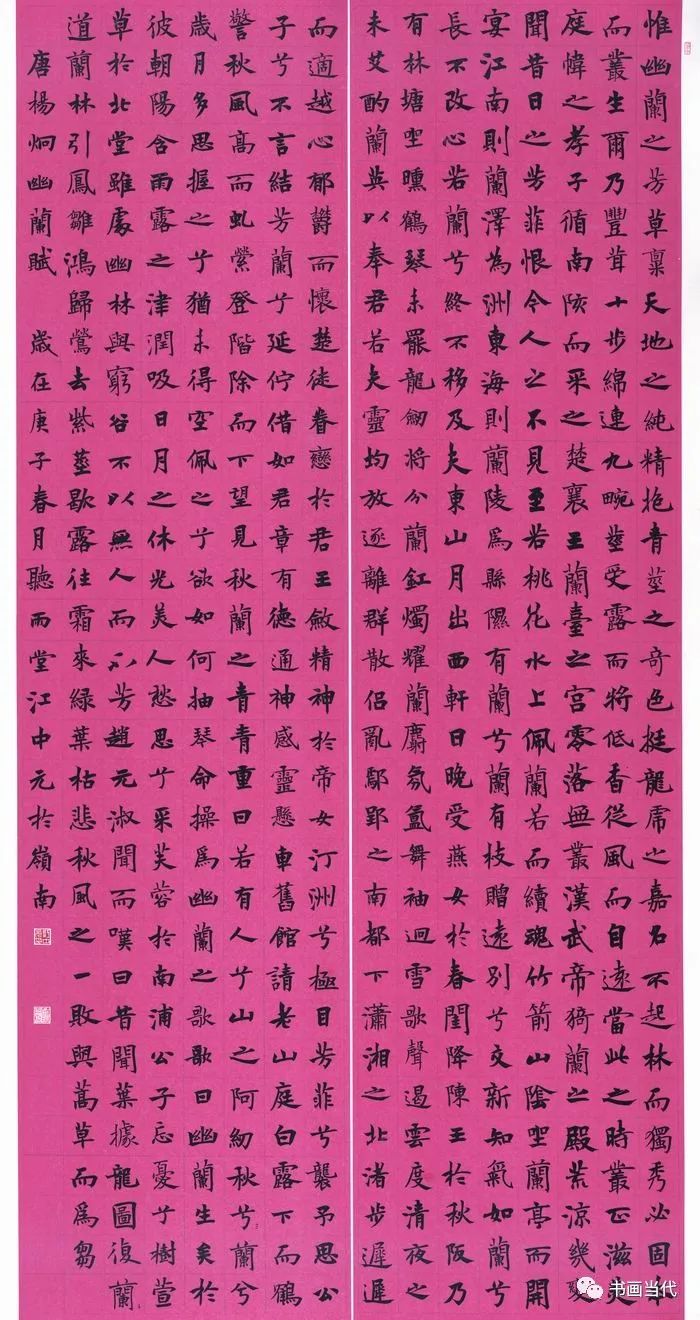 惟幽蘭之芳草稟天地之純精抱青莖之奇色挺龍虎之嘉名不起林而獨秀必固本
而叢生爾乃豐茸十步綿連九畹莖受露而將低香從風而自遠當此之時叢正滋美
庭幃之孝子循南陔而采之楚襄王蘭臺之宮零落無叢漢武帝猗蘭之殿荒涼幾變
聞昔日之芳菲恨今人之不見至若桃花水上佩蘭若而續魂竹箭山陰坐蘭亭而開
宴江南則蘭澤為洲東海則蘭陵爲縣隰有蘭兮蘭有枝贈遠別兮交新知氣如蘭兮
長不改心若蘭兮終不移及夫東山月出西軒日晚受燕女於春閨降陳王於秋阪乃
有林塘坐曛鶴琴未罷龍劒將分蘭釭燭耀蘭麝氛氳舞袖迴雪歌聲遏雲度清夜之
未艾酌蘭英以奉君若夫靈均放逐離群散侶亂鄢郢之南都下瀟湘之北渚步遲遲
而適越心郁鬱而懷楚徒眷戀於君王斂精神於帝女汀洲兮極目芳菲兮襲予思公
子兮不言結芳蘭兮延佇借如君章有德通神感靈懸車舊館請老山庭白露下而鶴
警秋風高而虬縈登階除而下望見秋蘭之青青重曰若有人兮山之阿紉秋兮蘭兮
歲月多思握之兮猶未得空佩之兮欲如何抽琴命操爲幽蘭之歌歌曰幽蘭生矣於
彼朝陽含雨露之津潤吸日月之休光美人愁思兮采芙蓉於南浦公子忘憂兮樹萱
草於北堂雖處幽林與窮谷不以無人而不芳趙元淑聞而嘆曰昔聞葉據龍圖復蘭
道蘭林引鳳雛鴻歸鶯去紫莖歇露往霜來綠葉枯悲秋風之一敗與蒿草而爲芻
唐楊炯幽蘭賦 歲在庚子春月聽而堂江中元於嶺南
书画当代